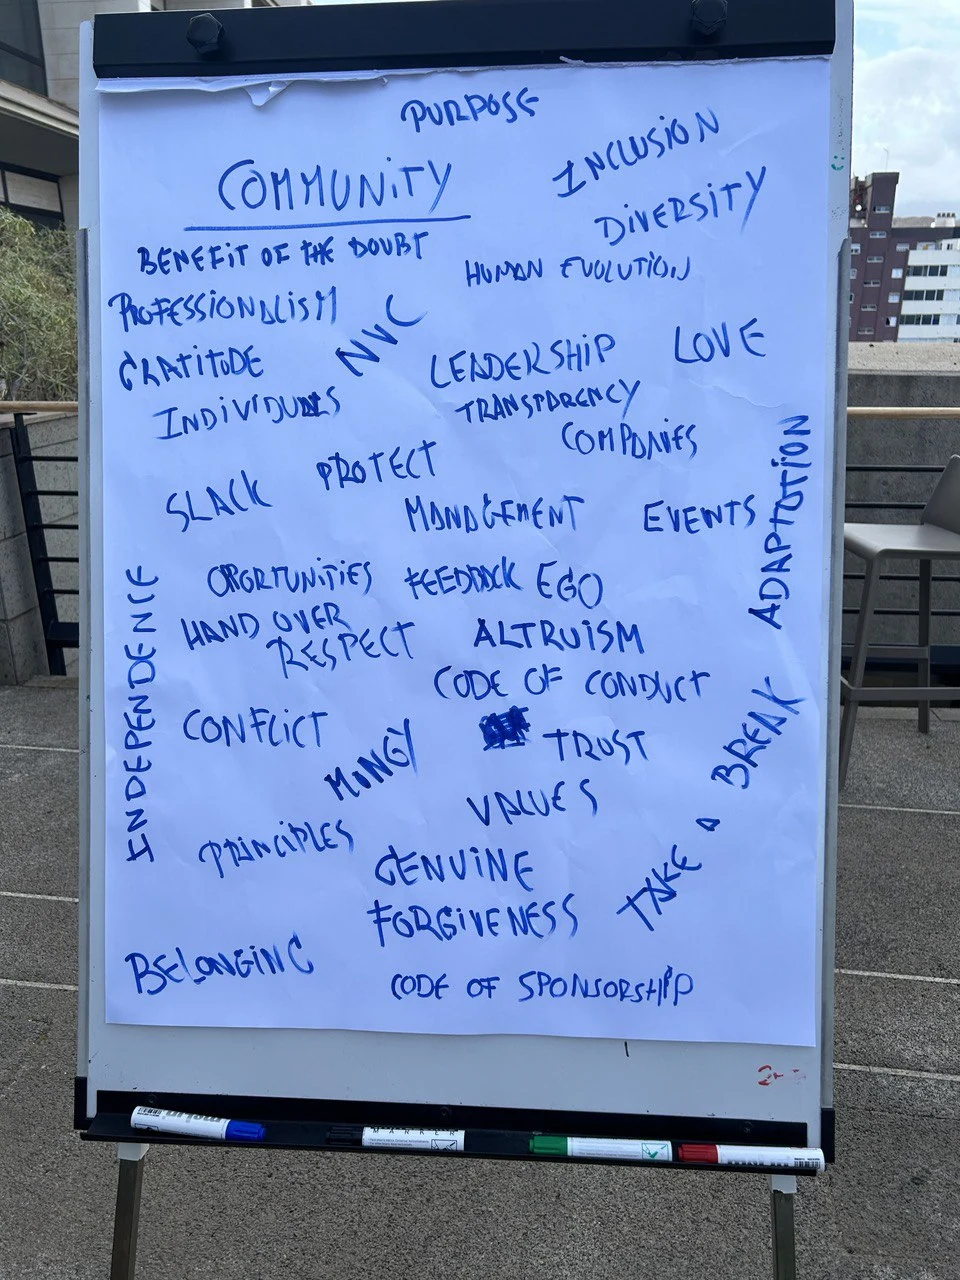 PURPOSE
INCLUSION
COMMUNITY
DIVERSITY
BENEFIT OF THE DOUBT
HUMAN EVOLUTION
PROFESSIONALISM
NVC
GRATITUDE
LEADERSHIP
LOVE
INDIVIDUALS
TRANSPARENCY
COMPANIES
PROTECT
SLACK
MANAGEMENT
EVENTS
ADAPTATION
OPORTUNITIES
FEEDBACK
EGO
HAND OVER
RESPECT
ALTRUISM
INDEPENDENCE
CODE OF CONDUCT
CONFLICT
TRUST
MONEY
TAKE A BREAK
VALUES
PRINCIPLES
GENUINE
FORGIVENESS
BELONGING
CODE OF SPONSORSHIP
MARKER